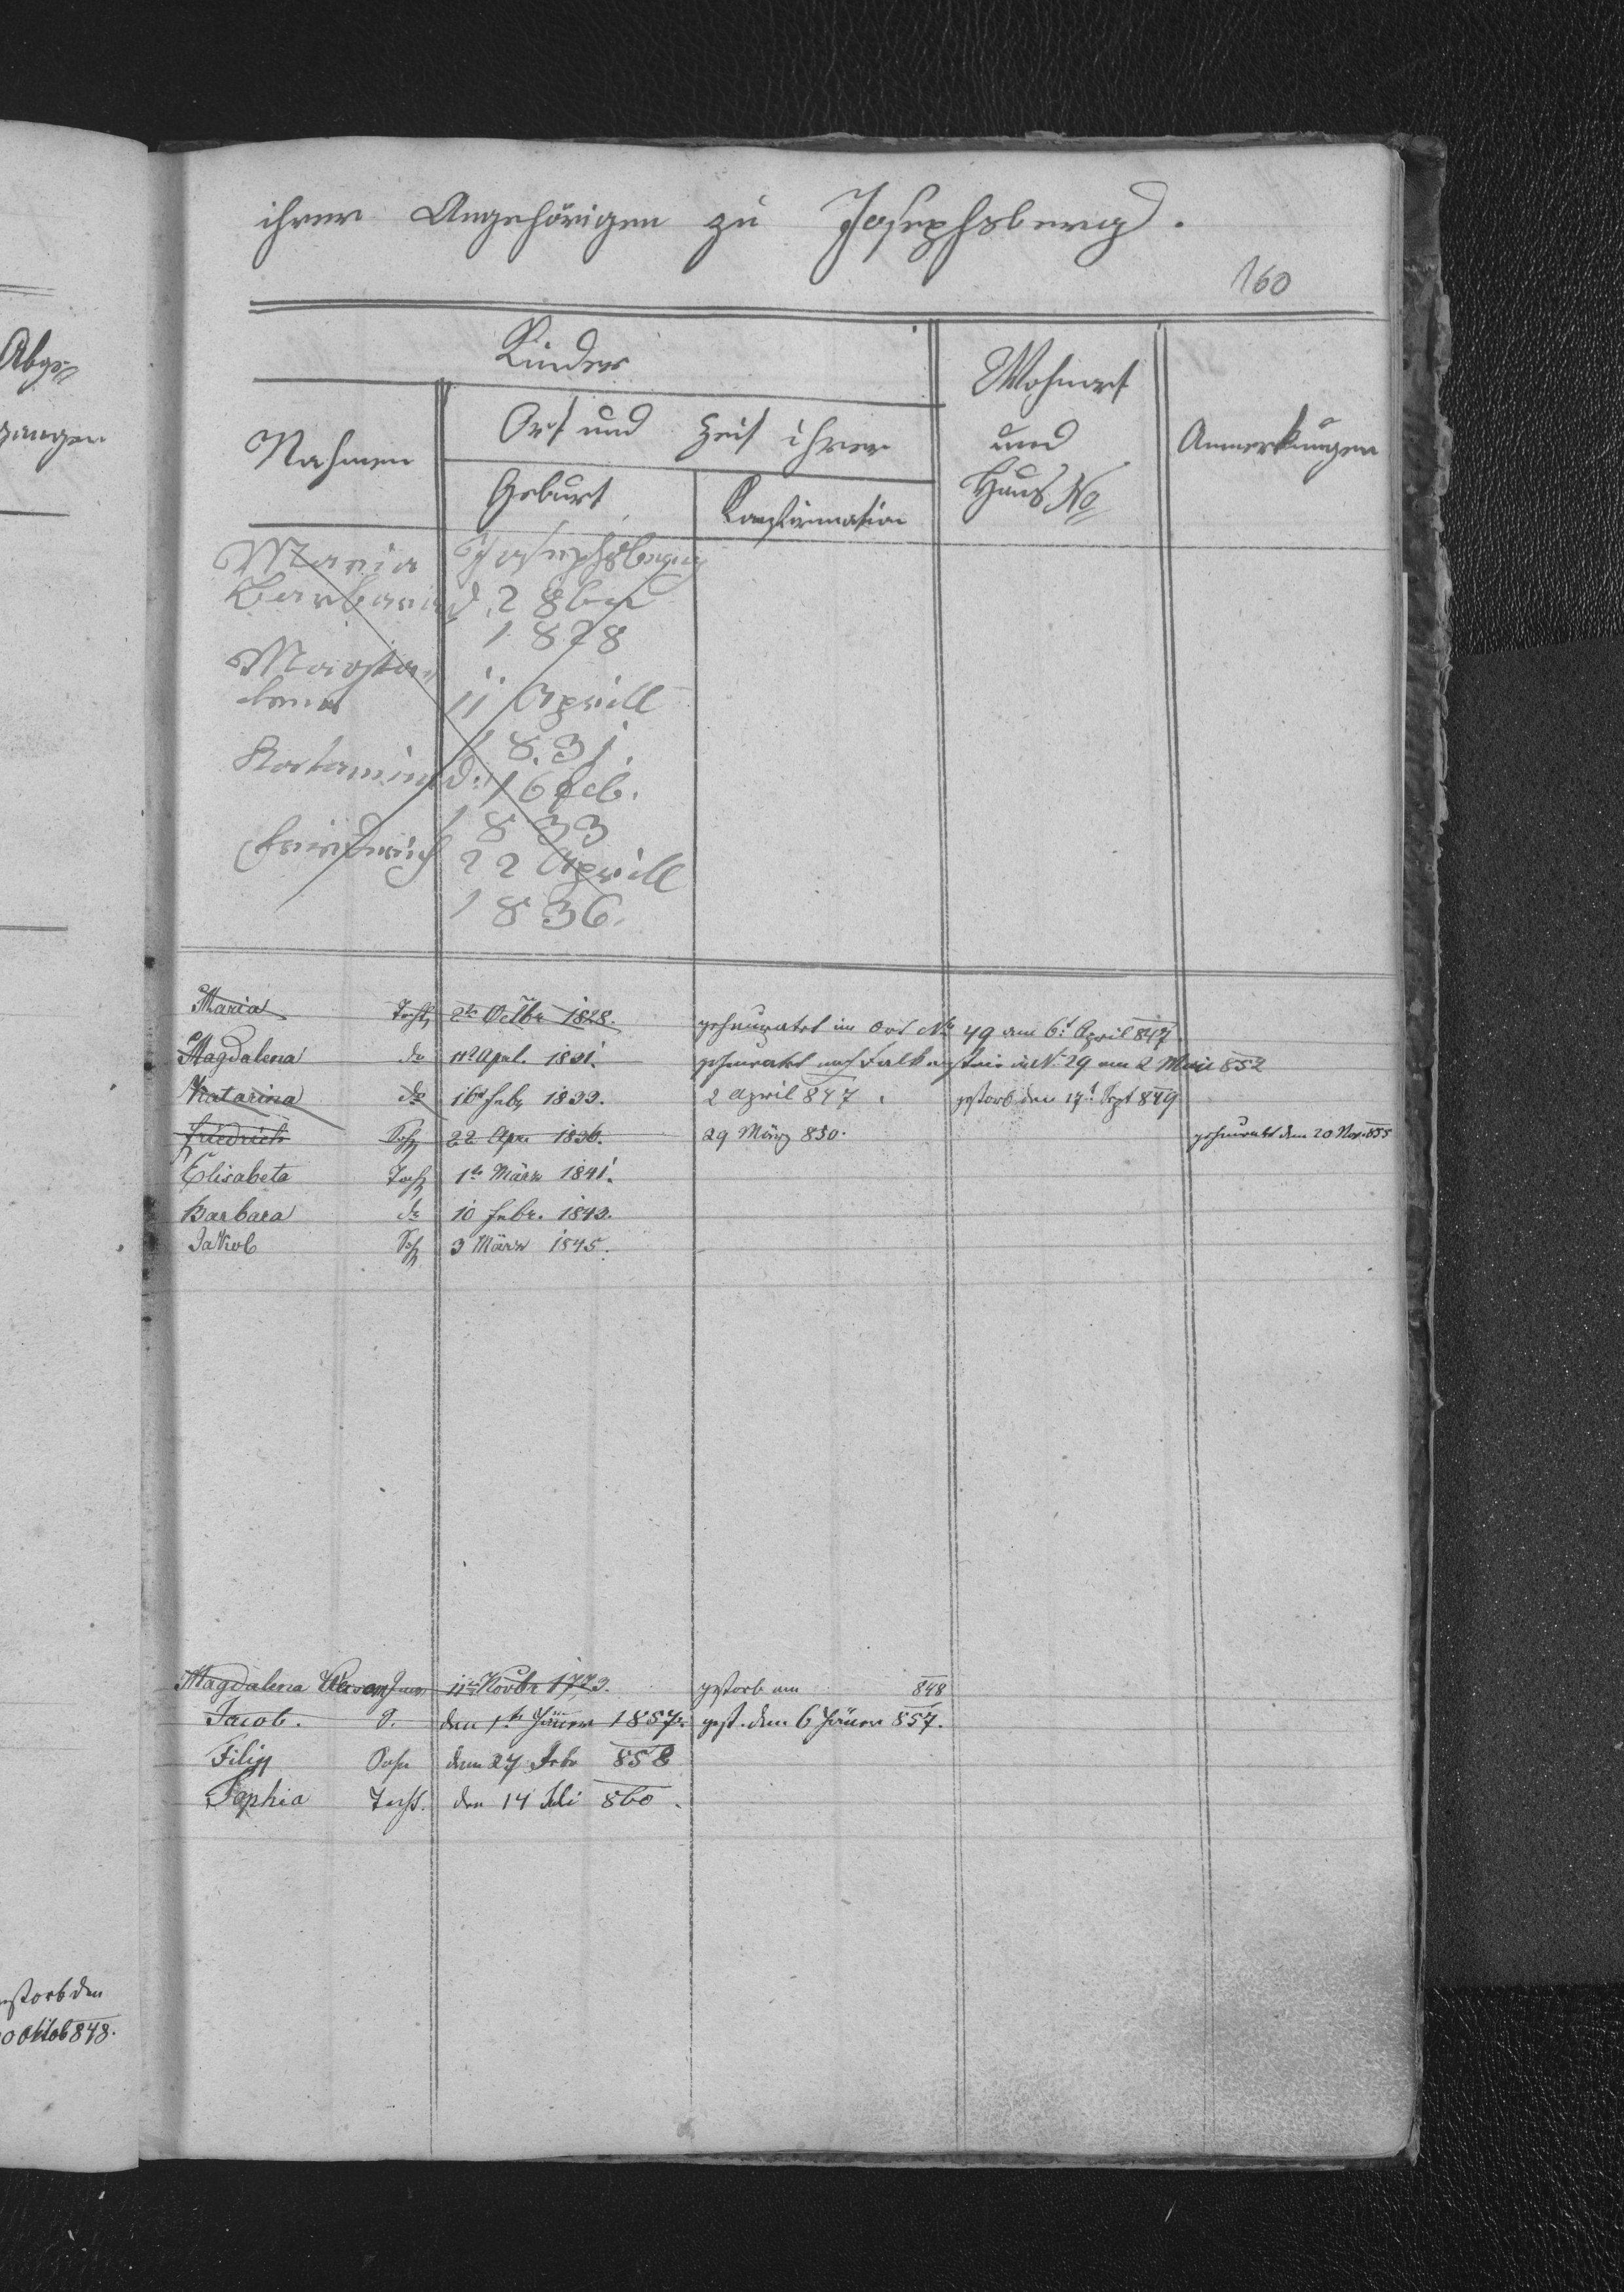 ihrer Angehörigen zu Josephsberg.
160
Abge=
gangen
Kinder
Wohnort
und
Haus No
Anmerkungen
Nahmen
Ort und Zeit ihrer
Geburt
Konfirmation
Maria Josephsberg
Barbara d. 2 8ber
1828
Magda=
lena 11 Aprill
1831.
Katarina d: 16 Feb.
1833
Friederich 22 Aprill
1836.
Maria Tocht 2te Octbr 1828. geheuratet im Ort No 49 am 6t April 847
Magdalena do 11t Aprl. 1831. geheuratet nach Falkenstein in N. 29 am 2 Mai 852
Katarina do 16t Febr 1833. 2 April 847. gestorb den 17t Sept 849
Friedrich Soh 22 Apr. 1836. 29 März 850. geheuratet den 20 Nov. 855
Elisabeta Toch 1te März 1841.
Barbara do 10 Febr. 1843.
Jakob Soh 3 März 1845.
Magdalena 11te Novbr 1773. gestorb am 848
Jacob. S. den 1te Jäner 1857. gest. den 6 Jäner 857.
Filip Sohn den 27 Febr 858
Sophia Tocht. den 14 Juli 860.
gestorb den
Oktob 848.